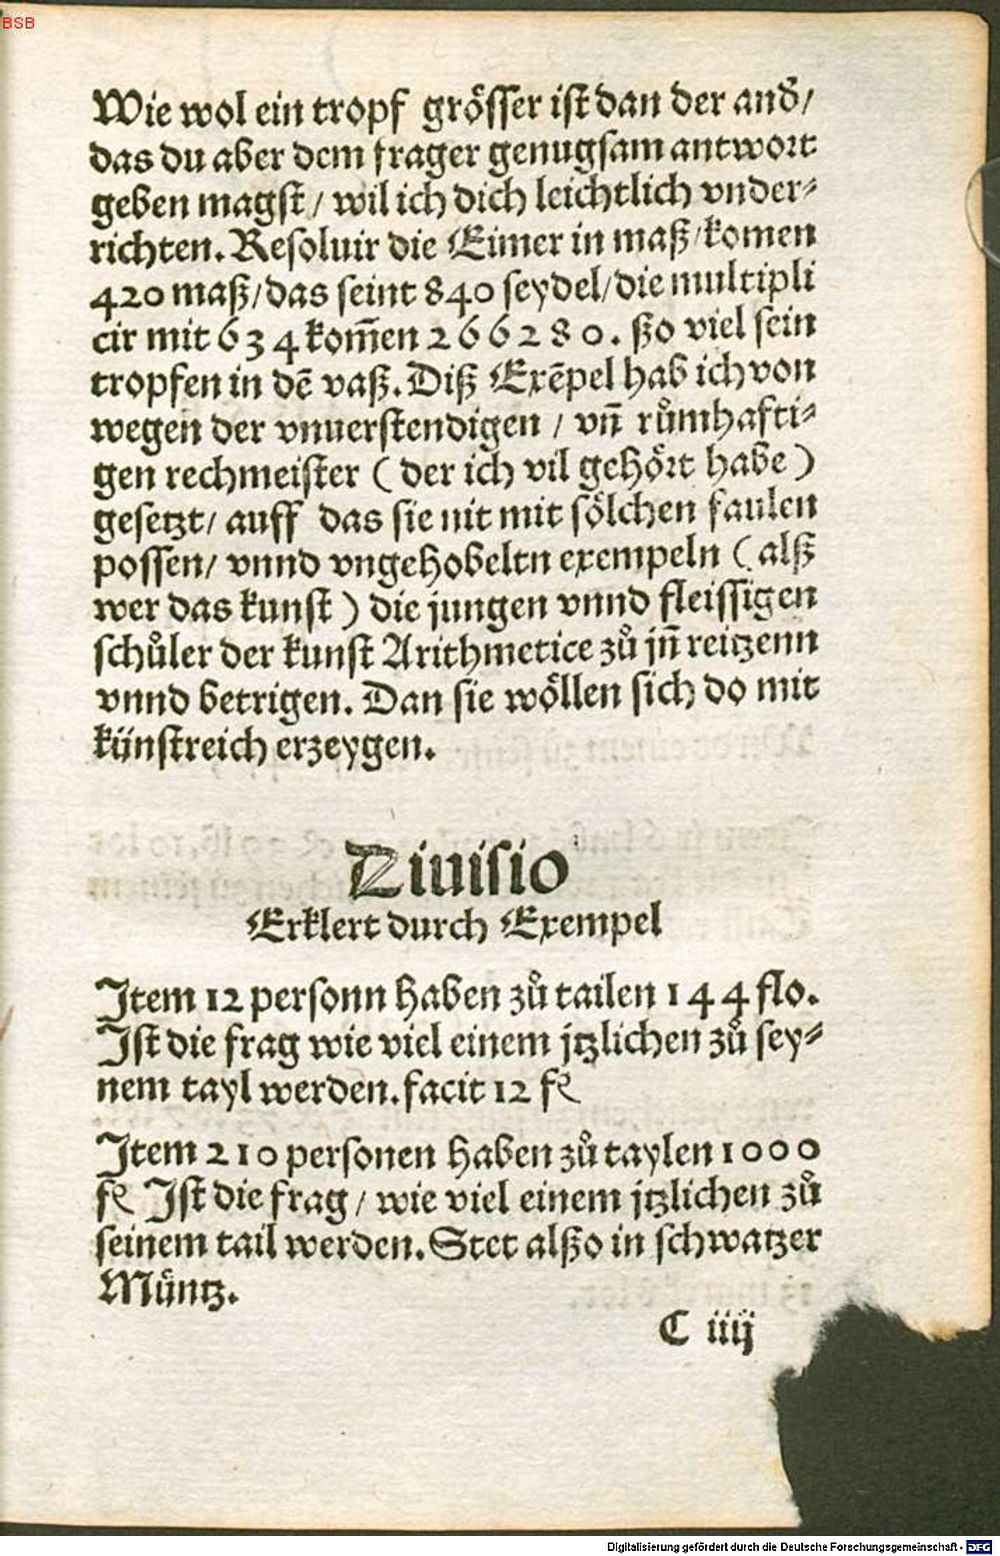 BSB
Wie wol ein tropf grösser ist dan der and̛/
das du aber dem frager genugsam antwort
geben magst / wil ich dich leichtlich vnder⸗
richten. Resoluir die Eimer in maß/komen
420 maß/das seint 840 seydel/die multipli
cir mit 634 kom̄en 266280. ßo viel sein
tropfen in dē vaß. Diß Exēpel hab ich von
wegen der vnuerstendigen / vn̄ růmhafti⸗
gen rechmeister ( der ich vil gehört habe )
gesetzt/ auff das sie nit mit sölchen faulen
possen/ vnnd vngehobeltn exempeln ( alß
wer das kunst ) die jungen vnnd fleissigen
schůler der kunst Arithmetice zů jn̄ reitzenn
vnnd betrigen. Dan sie wöllen sich do mit
künstreich erzeygen.
Diuisio
Erklert durch Exempel
Item 12 personn haben zů tailen 144 flo.
Ist die frag wie viel einem jtzlichen zů sey⸗
nem tayl werden. facit 12 fl
Item 210 personen haben zů taylen 1000
fl Ist die frag / wie viel einem jtzlichen zů
seinem tail werden. Stet alßo in schwatzer
Müntz.
C iiij
Digitalisierung gefördert durch die Deutsche Forschungsgemeinschaft - DFG